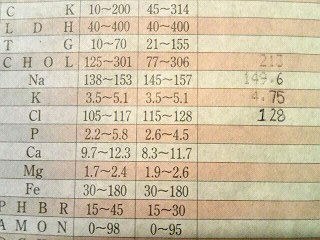 C K 10~200 45~314
L D H 40~400 40~400
T G 10~70 21~155
C H O L 125~301 77~306 213
Na 138~153 145~157 149.6
K 3.5~5.1 3.5~5.1 4.75
Cl 105~117 115~128 128
P 2.2~5.8 2.6~4.5
Ca 9.7~12.3 8.3~11.7
Mg 1.7~2.4 1.9~2.6
Fe 30~180 30~180
P H B R 15~45 15~30
A M O N 0~98 0~95